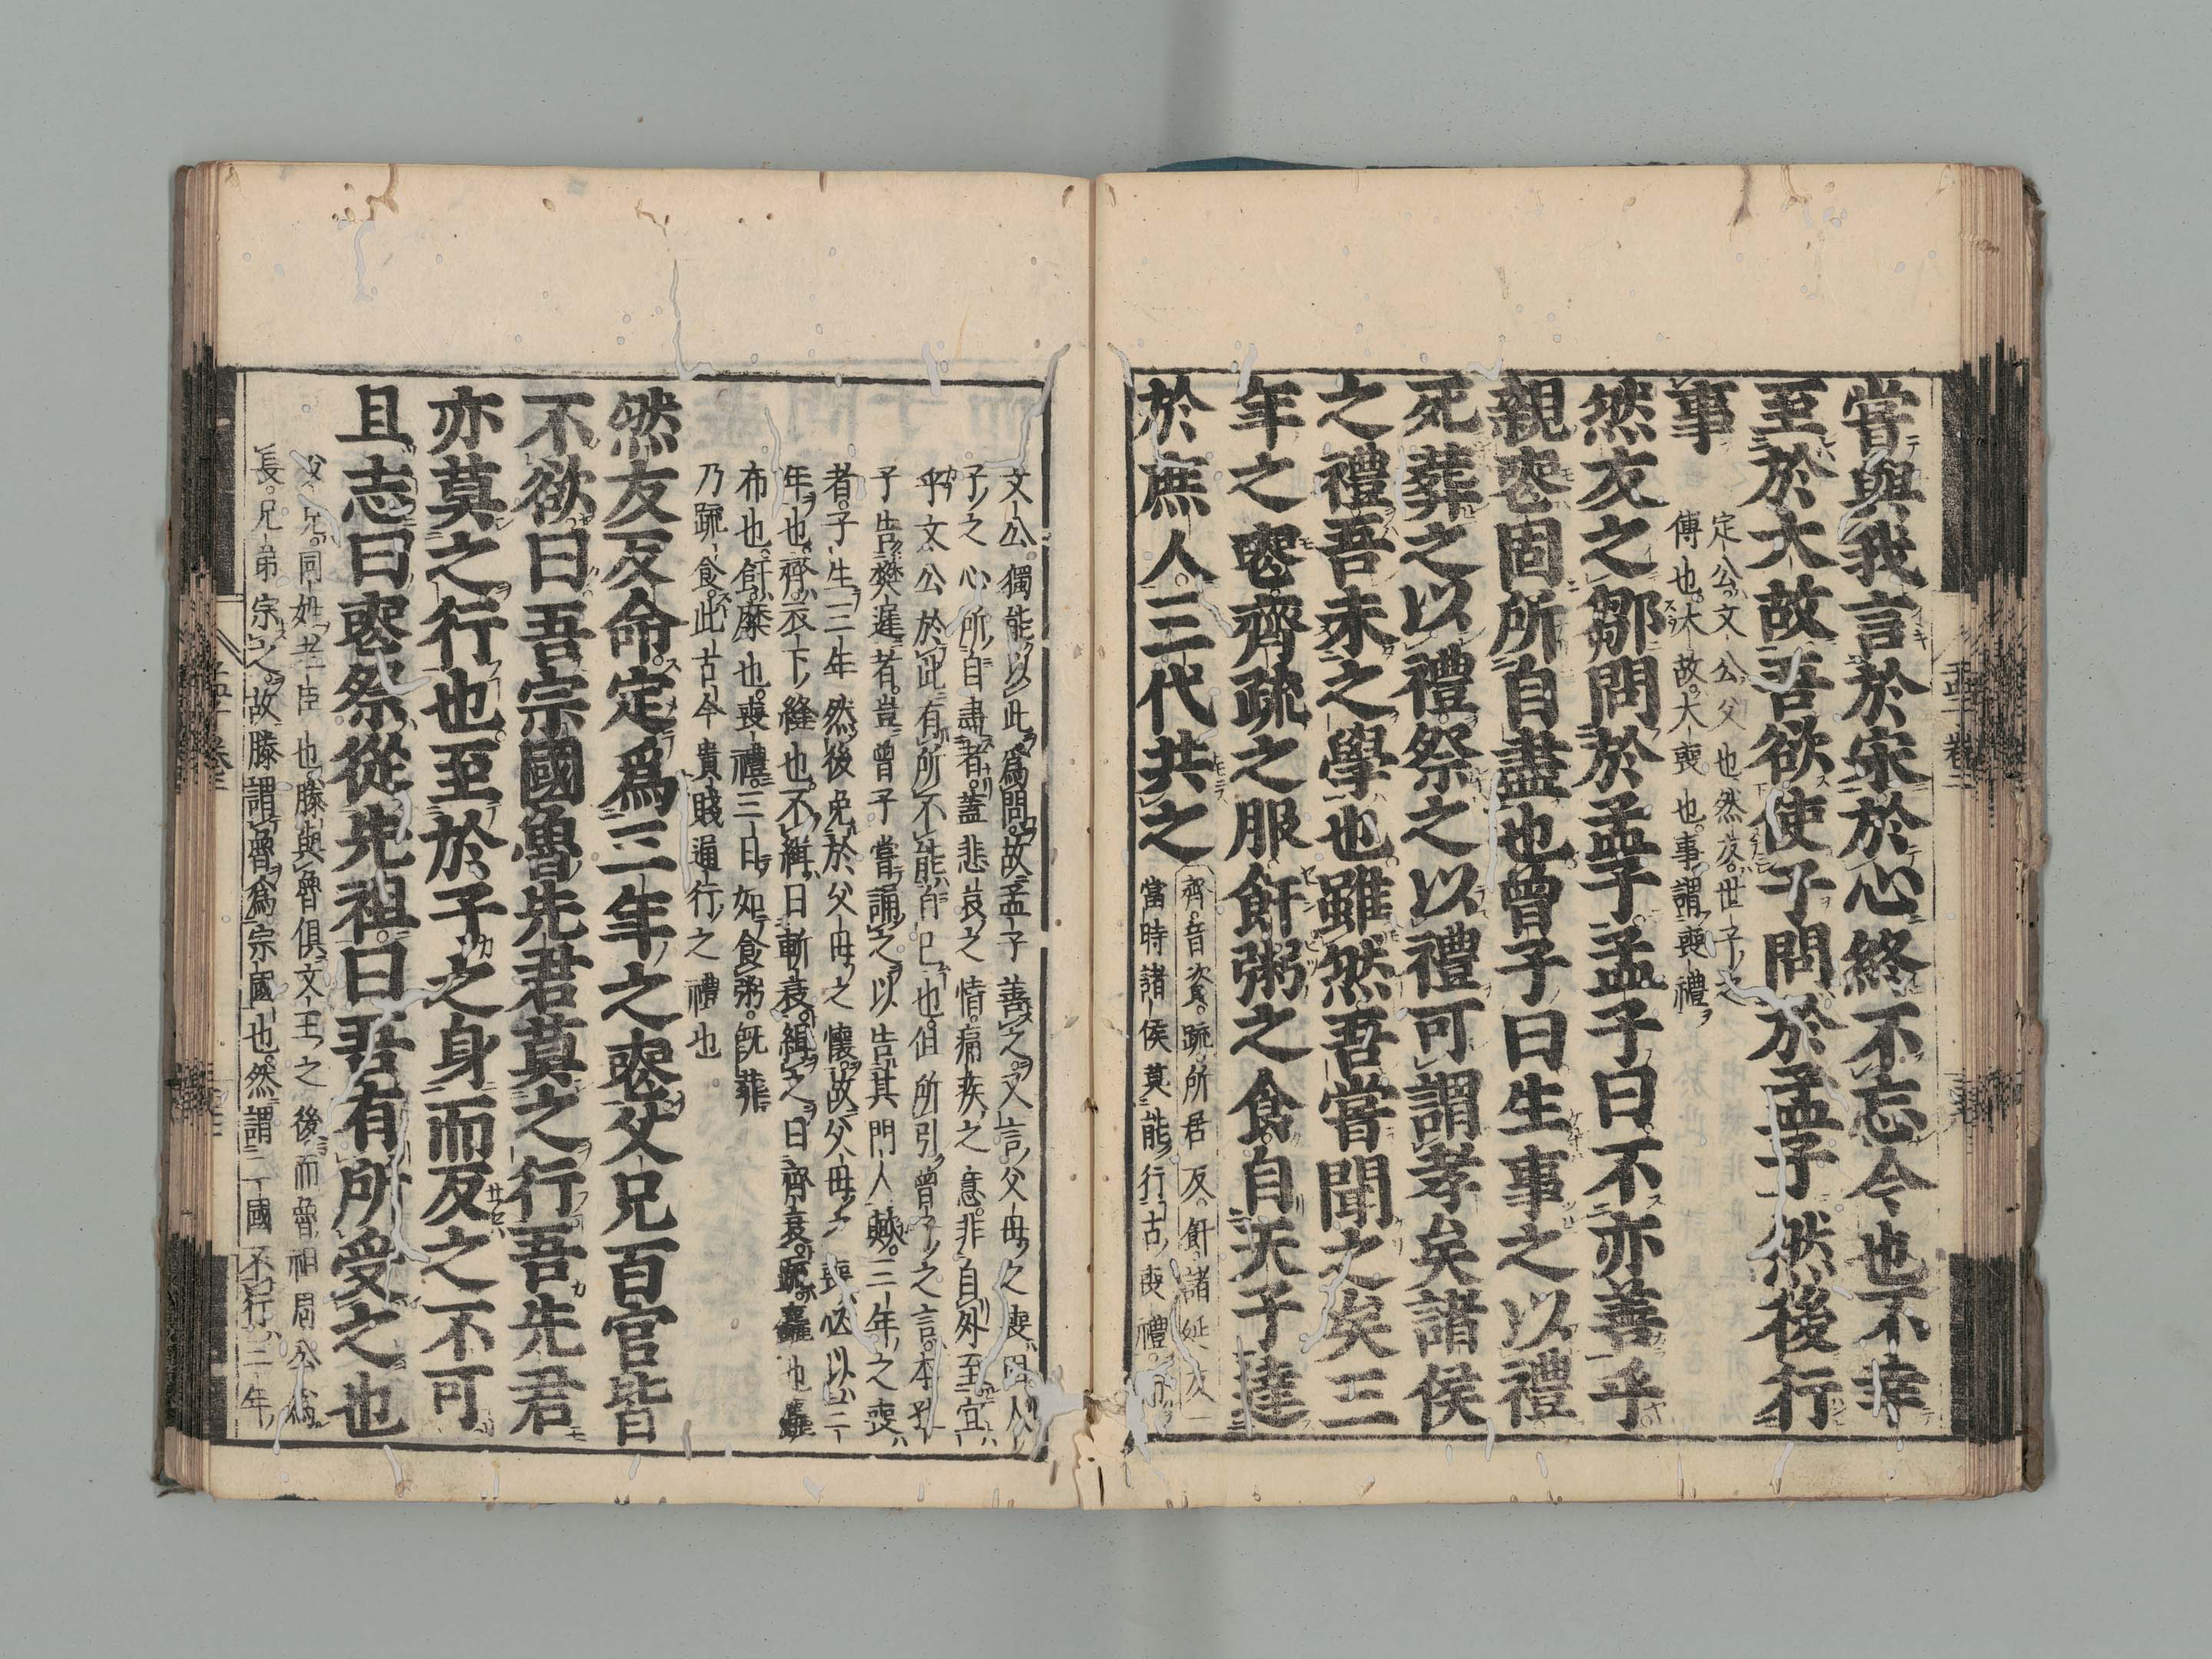 嘗與我言於宋於心終不忘今也不幸
至於大故吾欲使子問於孟子然後行
事
定公文公父也然友世子之
傅也大故大喪也事謂喪禮
然友之鄒問於孟子孟子曰不亦善乎
親喪固所自盡也曾子曰生事之以禮
死葬之以禮祭之以禮可謂孝矣諸侯
之禮吾未之學也雖然吾嘗聞之矣三
年之喪齊疏之服飦粥之食自天子達
於庶人三代共之
齊音資疏所居反飦諸延反
當時諸侯莫能行古喪禮而
文公獨能以此爲問故孟子善之又言父母之喪固人
子之心所自盡者蓋悲哀之情痛疾之意非自外至宜
乎文公於此有所不能自已也但所引曾子之言本孔
子告樊遲者豈曾子嘗誦之以告其門人歟三年之喪
者子生三年然後免於父母之懷故父母之喪必以三
年也齊衣下縫也不緝曰斬衰緝之曰齊衰疏麤也麤
布也飦糜也喪禮三日如食粥旣葬
乃疏食此古今貴賤通行之禮也
然友反命定爲三年之喪父兄百官皆
不欲曰吾宗國魯先君莫之行吾先君
亦莫之行也至於子之身而反之不可
且志曰喪祭從先祖曰吾有所受之也
父兄同姓老臣也滕與魯俱文王之後而魯祖周公爲
長兄弟宗之故滕謂魯爲宗國也然謂二國不行三年